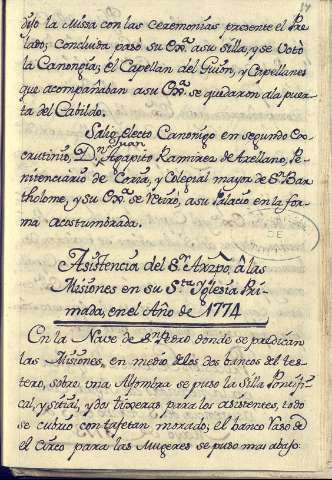 17
dijo la Missa con las Ceremonias presente el Pre
lado; Concluida pasò su Exª. a su Silla, y se Votó
la Canongia; el Capellan del Guion, y Capellanes
que acompañaban a su Exª. se quedaron a la puer
ta del Cabildo.
Salio Electo Canonigo en segundo Es
crutinio, Dn. Juan Agapito Ramirez de Arellano, Pe
nitenciario de Coria, y Colegial mayor de Sn. Bar
tholome, y su Exª. se retirò, a su Palacio en la for
ma acostumbrada.
Asistencia del Sr. Arzpo. â las
Misiones en su Sta. Yglesia Pri
mada, en el Año de 1774
En la Nave de Sn. Pedro donde se predican
las Misiones, en medio de los dos bancos del tes
tero, sobre una Alfombra se puso la Silla Pontifi
cal, y sitial, y dos tixeras para los asistentes, todo
se cubrio con tafetan morado, el banco raso de
el Circo para las Mugeres se puso mas abajo